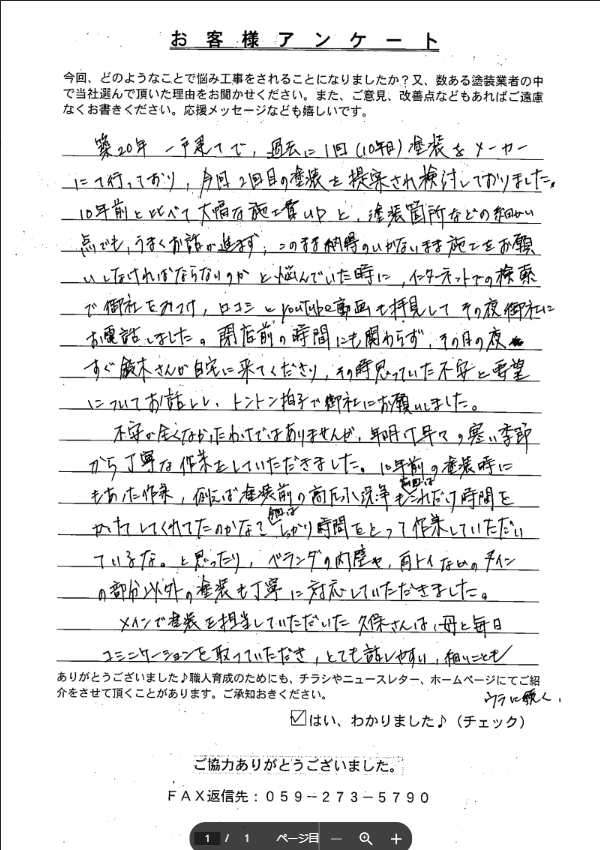 お客様アンケート
今回、どのようなことで悩み工事をされることになりましたか？又、数ある塗装業者の中
で当社選んで頂いた理由をお聞かせください。また、ご意見、改善点などもあればご遠慮
なくお書きください。応援メッセージなども嬉しいです。
築20年 一戸建てで、過去に1回(10年目)塗装をメーカー
にて行っており、今回2回目の塗装を提案され検討しておりました。
10年前と比べて大幅な施工費UPと、塗装箇所などの細かい
点でも、うまくお話が進まず、このまま納得のいかないまま施工をお願
いしなければならないのかと悩んでいた時に、インターネットでの検索
で御社をみつけ、口コミとyoutube動画も拝見してその夜御社に
お電話しました。閉店前の時間にも関わらず、その日の夜
すぐ鈴木さんが自宅に来てくださり、その時思っていた不安と要望
についてお話しし、トントン拍子で御社にお願いしました。
不安が全くなかったわけではありませんが、年明け早々の寒い季節
から丁寧な作業をしていただきました。10年前の塗装時に
もあった作業、例えば塗装前の高圧水洗浄も前回はこれだけ時間を
かけてしてくれてたのかなて今回はしっかり時間をとって作業していただい
ているな。と思ったり、ベランダの内壁や、雨トイなどのメイン
の部分以外の塗装も丁寧に対応していただきました。
メインで塗装を担当していただいた久保さんは、母と毎日
コミニケーションを取っていただき、とても話しやすい、細いことも
ありがとうございました♪職人育成のためにも、チラシやニュースレター、ホームページにてご紹
介をさせて頂くことがあります。ご承知おきください。
ウラに続く。
☑はい、わかりました♪（チェック）
ご協力ありがとうございました。
FAX返信先：059－273－5790
1 / 1 ページ目